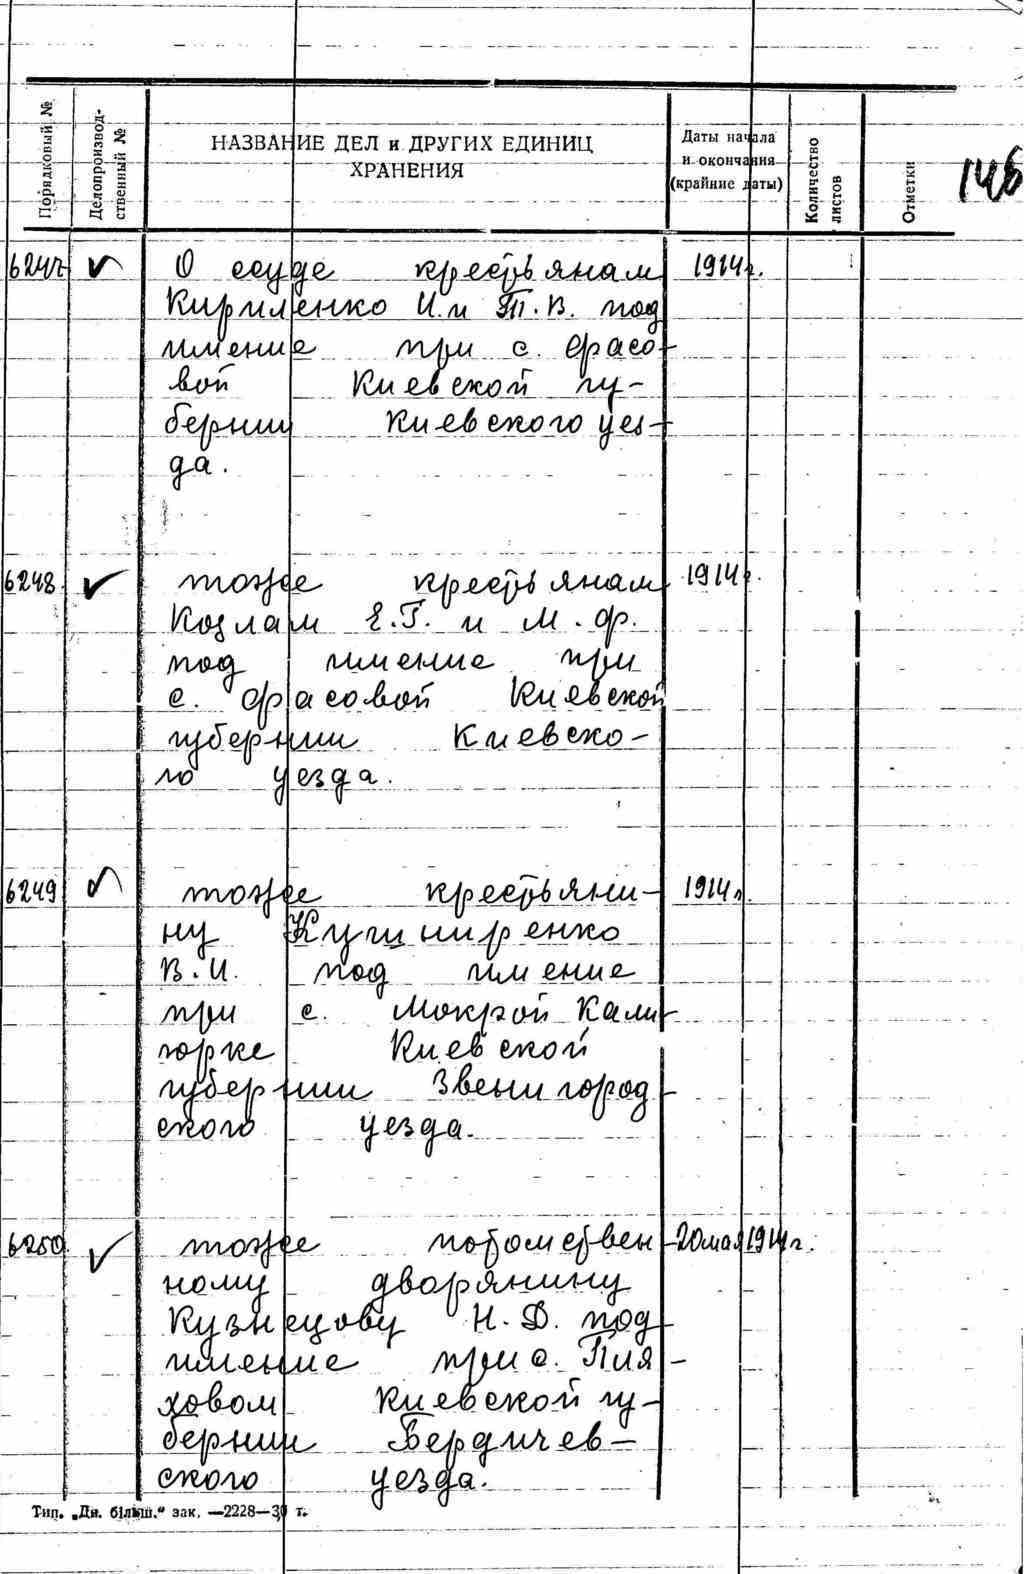 Порядковый №
Делопроизвод-
ственный №
НАЗВАНИЕ ДЕЛ и ДРУГИХ ЕДИНИЦ
ХРАНЕНИЯ
Даты начала
и окончания
(крайние даты)
Количество
листов
Отметки
146
6247 О ссуде крестьянам 1914г.
Кириленко И. и Т. В. под
имение при с. Фасо-
вой Киевской гу-
бернии Киевского уез-
да.
6248. тоже крестьянам 1914г.
Козлам Е. Г. и М. Ф.
под имение при
с. Фасовой Киевской
губернии Киевско-
го уезда.
6249 тоже крестьяни- 1914г.
ну Кушниренко
В. И. под имение
при с. Мокрой Кали-
горке Киевской
губернии Звенигород-
ского уезда.
6250 тоже потомствен- 20 мая 1914 г.
ному дворянину
Кузнецову Н. Д. под
имение при с. Пля-
ховом Киевской гу-
бернии Бердичев-
ского уезда.
Тип. „Дн. більш.“ зак. —2228—30 т.